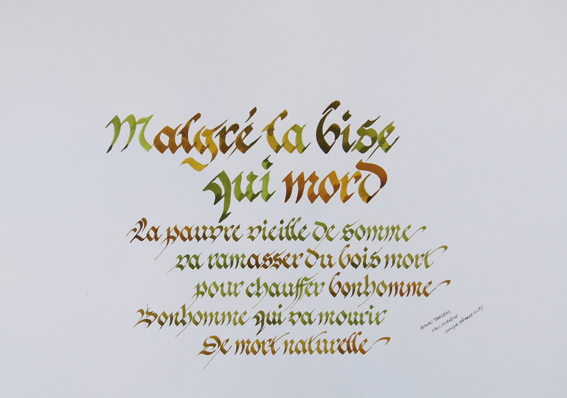 Malgré la bise
qui mord
La pauvre vieille de somme
va ramasser du bois mort
pour chauffer bonhomme
Bonhomme qui va mourir
De mort naturelle